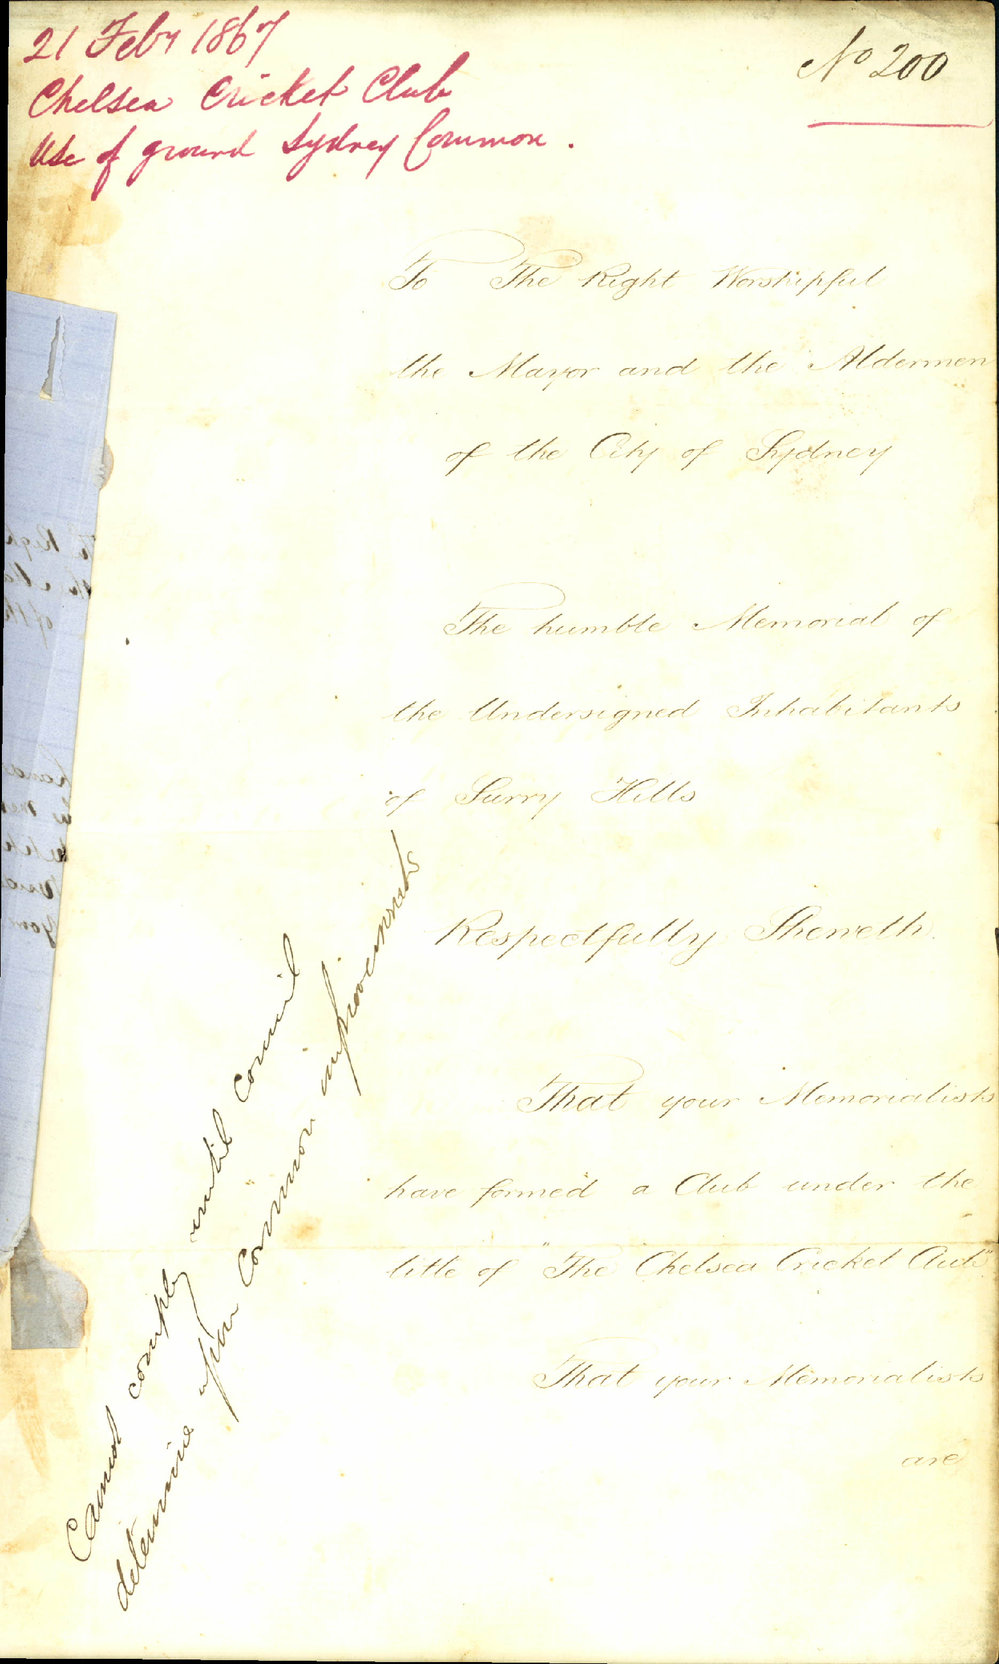 21 Feby 1867
Chelsea Cricket Club
Use of ground Sydney Common.
No 200
To The Right Worshipful
the Mayor and the Aldermen
of the City of Sydney
The humble Memorial of
the Undersigned Inhabitants
of Surry Hills
Respectfully Sheweth.
That your Memorialists
have formed a Club under the
title of "The Chelsea Cricket Club".
That your Memorialists
are
Cannot comply until Council
determine upon Common improvements